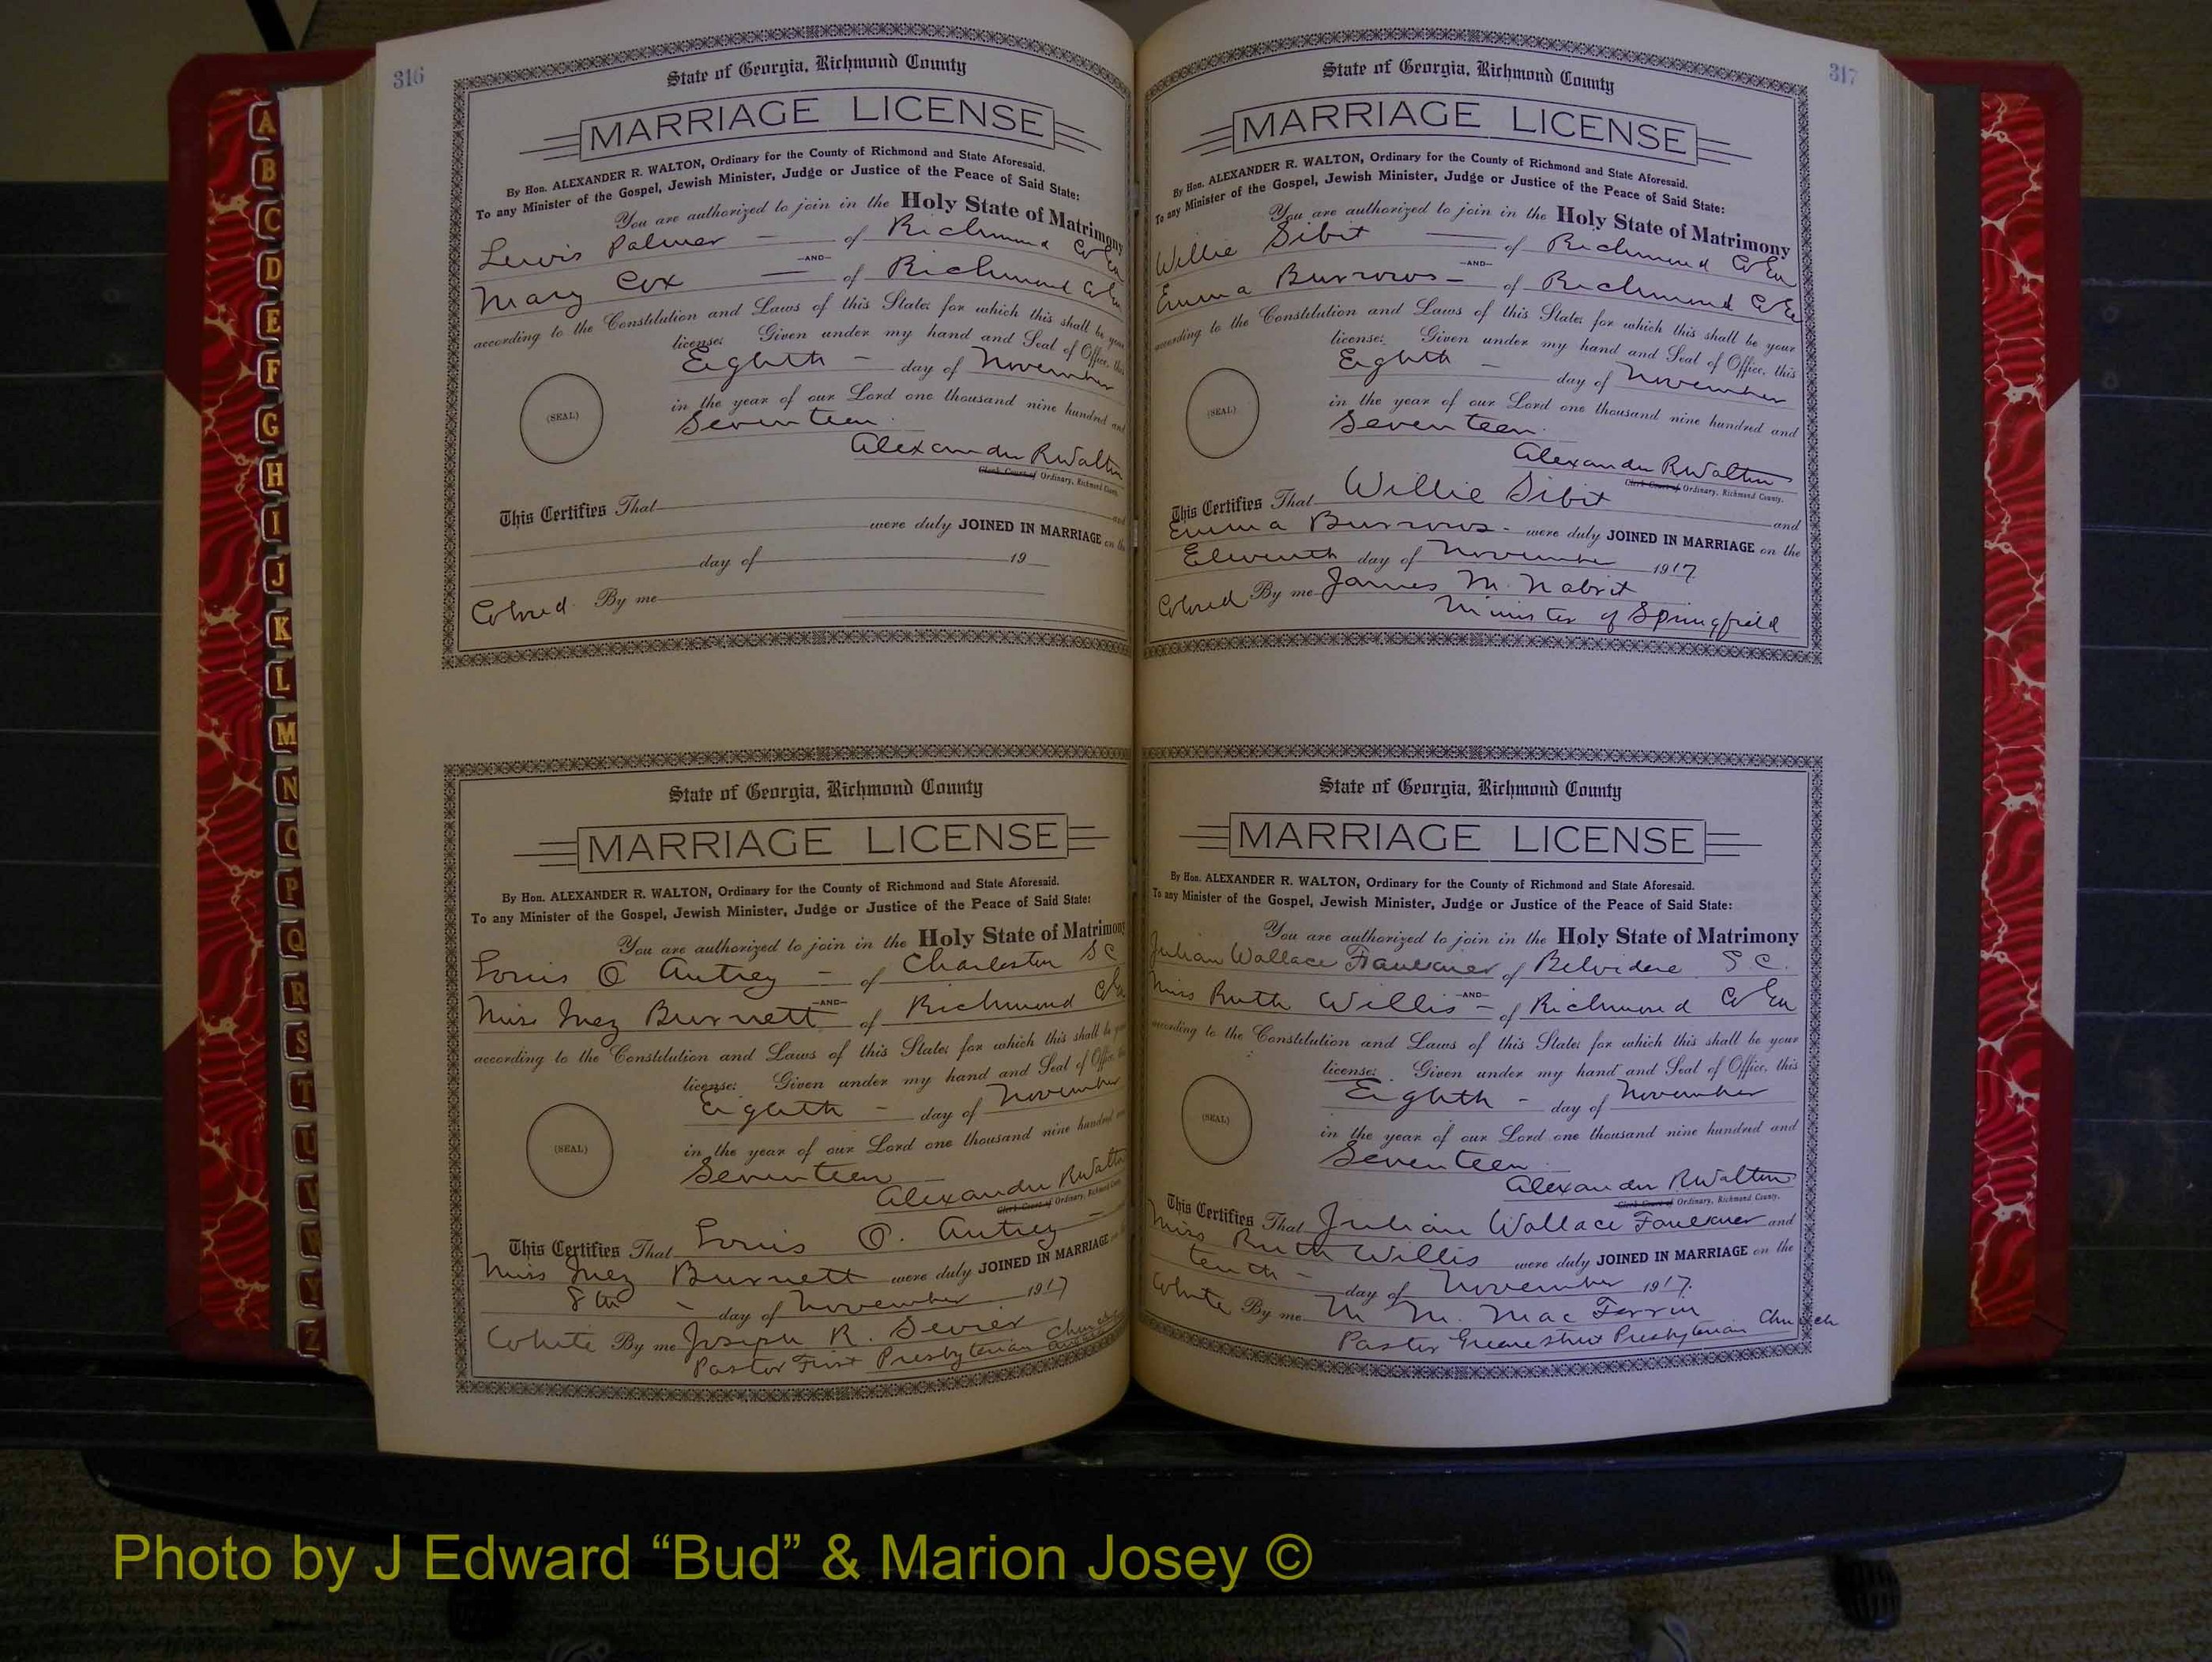 316
State of Georgia, Richmond County
MARRIAGE LICENSE
By Hon. ALEXANDER R. WALTON, Ordinary for the County of Richmond and State Aforesaid.
To any Minister of the Gospel, Jewish Minister, Judge or Justice of the Peace of Said State:
You are authorized to join in the Holy State of Matrimony
Lewis Palmer of Richmond Co Ga
-AND-
Mary Cox of Richmond Co Ga
according to the Constitution and Laws of this State; for which this shall be your
license: Given under my hand and Seal of Office, this
Eighth day of November
in the year of our Lord one thousand nine hundred and
Seventeen
(SEAL)
Alexander R Walton
Clerk Court of Ordinary, Richmond County.
This Certifies That and
were duly JOINED IN MARRIAGE on the
day of 19
Colored By me
State of Georgia, Richmond County
MARRIAGE LICENSE
By Hon. ALEXANDER R. WALTON, Ordinary for the County of Richmond and State Aforesaid.
To any Minister of the Gospel, Jewish Minister, Judge or Justice of the Peace of Said State:
You are authorized to join in the Holy State of Matrimony
Louis O Autrey of Charleston S C
-AND-
Miss Inez Burnett of Richmond Co Ga
according to the Constitution and Laws of this State; for which this shall be your
license: Given under my hand and Seal of Office, this
Eighth day of November
in the year of our Lord one thousand nine hundred and
Seventeen
(SEAL)
Alexander R Walton
Clerk Court of Ordinary, Richmond County
This Certifies That Louis O. Autrey
Miss Inez Burnett were duly JOINED IN MARRIAGE on the
8th day of November 1917
White By me Joseph R. Sevier
Pastor First Presbyterian Church
317
State of Georgia, Richmond County
MARRIAGE LICENSE
By Hon. ALEXANDER R. WALTON, Ordinary for the County of Richmond and State Aforesaid.
To any Minister of the Gospel, Jewish Minister, Judge or Justice of the Peace of Said State:
You are authorized to join in the Holy State of Matrimony
Willie Sibit of Richmond Co Ga
-AND-
Emma Burrows of Richmond Co Ga
according to the Constitution and Laws of this State; for which this shall be your
license: Given under my hand and Seal of Office, this
Eighth day of November
in the year of our Lord one thousand nine hundred and
Seventeen
(SEAL)
Alexander R Walton
Clerk Court of Ordinary, Richmond County.
This Certifies That Willie Sibit and
Emma Burrows were duly JOINED IN MARRIAGE on the
Eleventh day of November 1917
Colored By me James M. Nabrit
Minister of Springfield
State of Georgia, Richmond County
MARRIAGE LICENSE
By Hon. ALEXANDER R. WALTON, Ordinary for the County of Richmond and State Aforesaid.
To any Minister of the Gospel, Jewish Minister, Judge or Justice of the Peace of Said State:
You are authorized to join in the Holy State of Matrimony
Julian Wallace Faulkner of Belvidere S C.
-AND-
Miss Ruth Willis of Richmond Co Ga
according to the Constitution and Laws of this State; for which this shall be your
license: Given under my hand and Seal of Office, this
Eighth day of November
in the year of our Lord one thousand nine hundred and
Seventeen
(SEAL)
Alexander R Walton
Clerk Court of Ordinary, Richmond County.
This Certifies That Julian Wallace Faulkner and
Miss Ruth Willis were duly JOINED IN MARRIAGE on the
tenth day of November 1917.
White By me M. M. Mac Ferrin
Pastor Greene Street Presbyterian Church
A
B
C
D
E
F
G
H
I
J
K
L
M
N
O
P
Q
R
S
T
U
V
W
Y
Z
Photo by J Edward “Bud” & Marion Josey ©